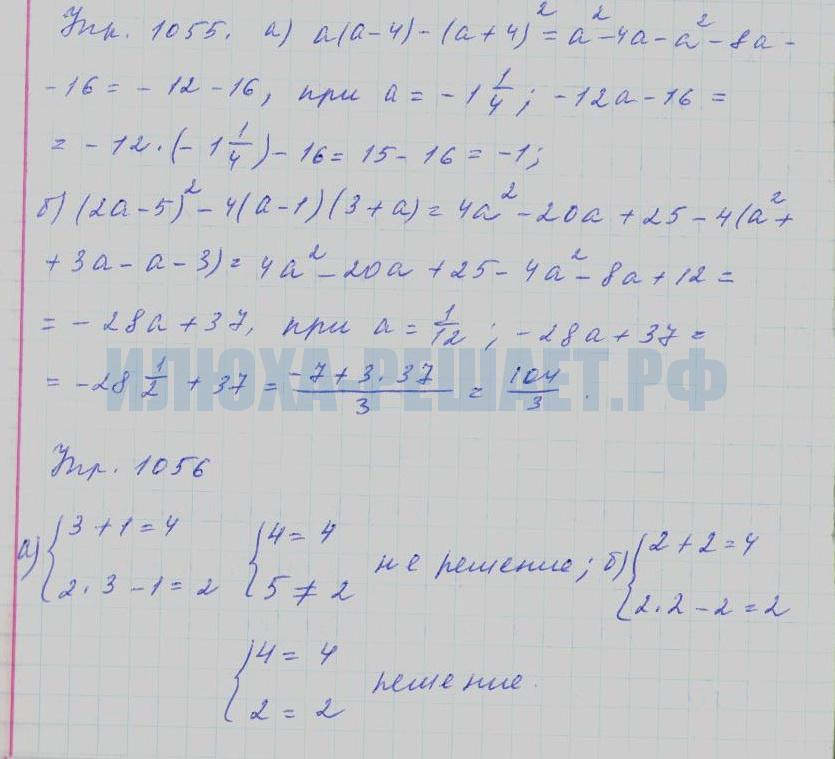 Упр. 1055. а) a(a-4)-(a+4)² = a²-4a-a²-8a-
-16 = -12-16, при a = -1 1/4; -12a-16 =
= -12·(-1 1/4)-16 = 15-16 = -1;
б) (2a-5)²-4(a-1)(3+a) = 4a²-20a+25-4(a²+
+3a-a-3) = 4a²-20a+25-4a²-8a+12 =
= -28a+37, при a = 1/12; -28a+37 =
= -28 1/2 + 37 = (-7+3·37)/3 = 104/3.
ИЛЮХА-РЕШАЕТ.РФ
Упр. 1056
а) { 3+1=4 { 4=4 не решение; б) { 2+2=4
2·3-1=2 5≠2 2·2-2=2
{ 4=4 решение.
2=2